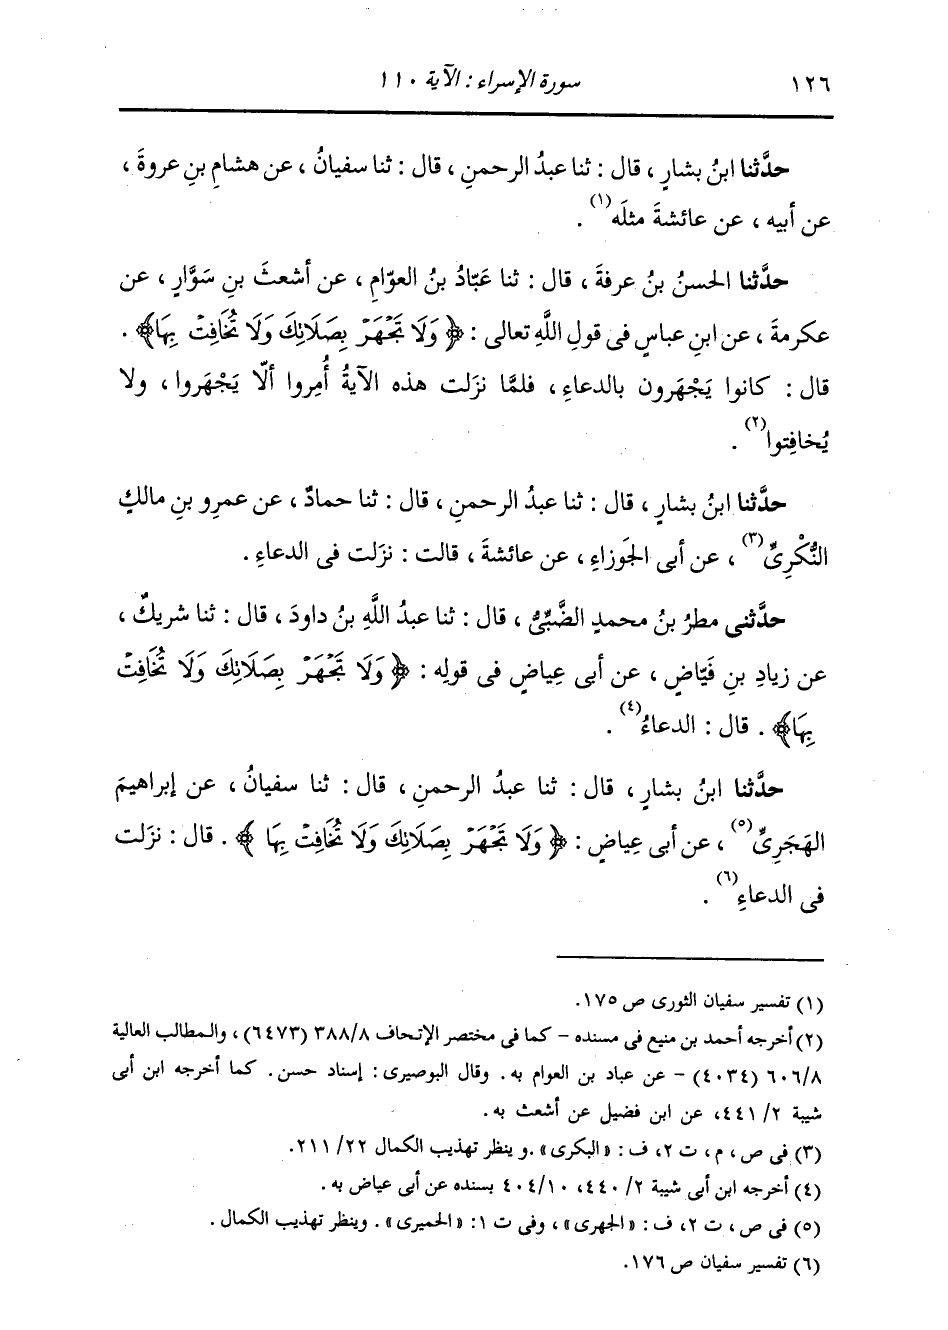 ١٢٦ سورة الإسراء : الآية ١١٠
حدَّثنا ابنُ بشارٍ ، قال : ثنا عبدُ الرحمنِ ، قال : ثنا سفيانُ ، عن هشامِ بنِ عروةَ ،
عن أبيه ، عن عائشةَ مثلَه(١) .
حدَّثنا الحسنُ بنُ عرفةَ ، قال : ثنا عَبّادُ بنُ العوّامِ ، عن أشعثَ بنِ سَوَّارٍ ، عن
عكرمةَ ، عن ابنِ عباسٍ فى قولِ اللَّهِ تعالى : ﴿ وَلَا تَجْهَرْ بِصَلَاتِكَ وَلَا تُخَافِتْ بِهَا﴾ .
قال : كانوا يَجْهَرون بالدعاءِ ، فلمَّا نزَلت هذه الآيةُ أُمِروا ألّا يَجْهَروا ، ولا
يُخافِتوا(٢) .
حدَّثنا ابنُ بشارٍ ، قال : ثنا عبدُ الرحمنِ ، قال : ثنا حمادٌ ، عن عمرِو بنِ مالكٍ
النُّكْرِىِّ(٣) ، عن أبى الجَوزاءِ ، عن عائشةَ ، قالت : نزَلت فى الدعاءِ .
حدَّثنى مطرُ بنُ محمدٍ الضَّبِّىُّ ، قال : ثنا عبدُ اللَّهِ بنُ داودَ ، قال : ثنا شريكٌ ،
عن زيادِ بنِ فَيّاضٍ ، عن أبى عِياضٍ فى قولِه : ﴿ وَلَا تَجْهَرْ بِصَلَاتِكَ وَلَا تُخَافِتْ
بِهَا﴾ . قال : الدعاءُ(٤) .
حدَّثنا ابنُ بشارٍ ، قال : ثنا عبدُ الرحمنِ ، قال : ثنا سفيانُ ، عن إبراهيمَ
الهَجَرِىِّ(٥) ، عن أبى عِياضٍ : ﴿ وَلَا تَجْهَرْ بِصَلَاتِكَ وَلَا تُخَافِتْ بِهَا ﴾ . قال : نزَلت
فى الدعاءِ(٦) .
(١) تفسير سفيان الثورى ص ١٧٥.
(٢) أخرجه أحمد بن منيع فى مسنده - كما فى مختصر الإتحاف ٣٨٨/٨ (٦٤٧٣) ، والمطالب العالية
٦٠٦/٨ (٤٠٣٤) - عن عباد بن العوام به . وقال البوصيرى : إسناد حسن . كما أخرجه ابن أبى
شيبة ٢/ ٤٤١، عن ابن فضيل عن أشعث به .
(٣) فى ص ، م ، ت ٢، ف : « البكرى » .و ينظر تهذيب الكمال ٢٢/ ٢١١.
(٤) أخرجه ابن أبى شيبة ٢/ ٤٤٠، ٤٠٤/١٠ بسنده عن أبى عياض به .
(٥) فى ص ، ت ٢، ف : « الجهرى » ، وفى ت ١: « الحميرى » . وينظر تهذيب الكمال .
(٦) تفسير سفيان ص ١٧٦.